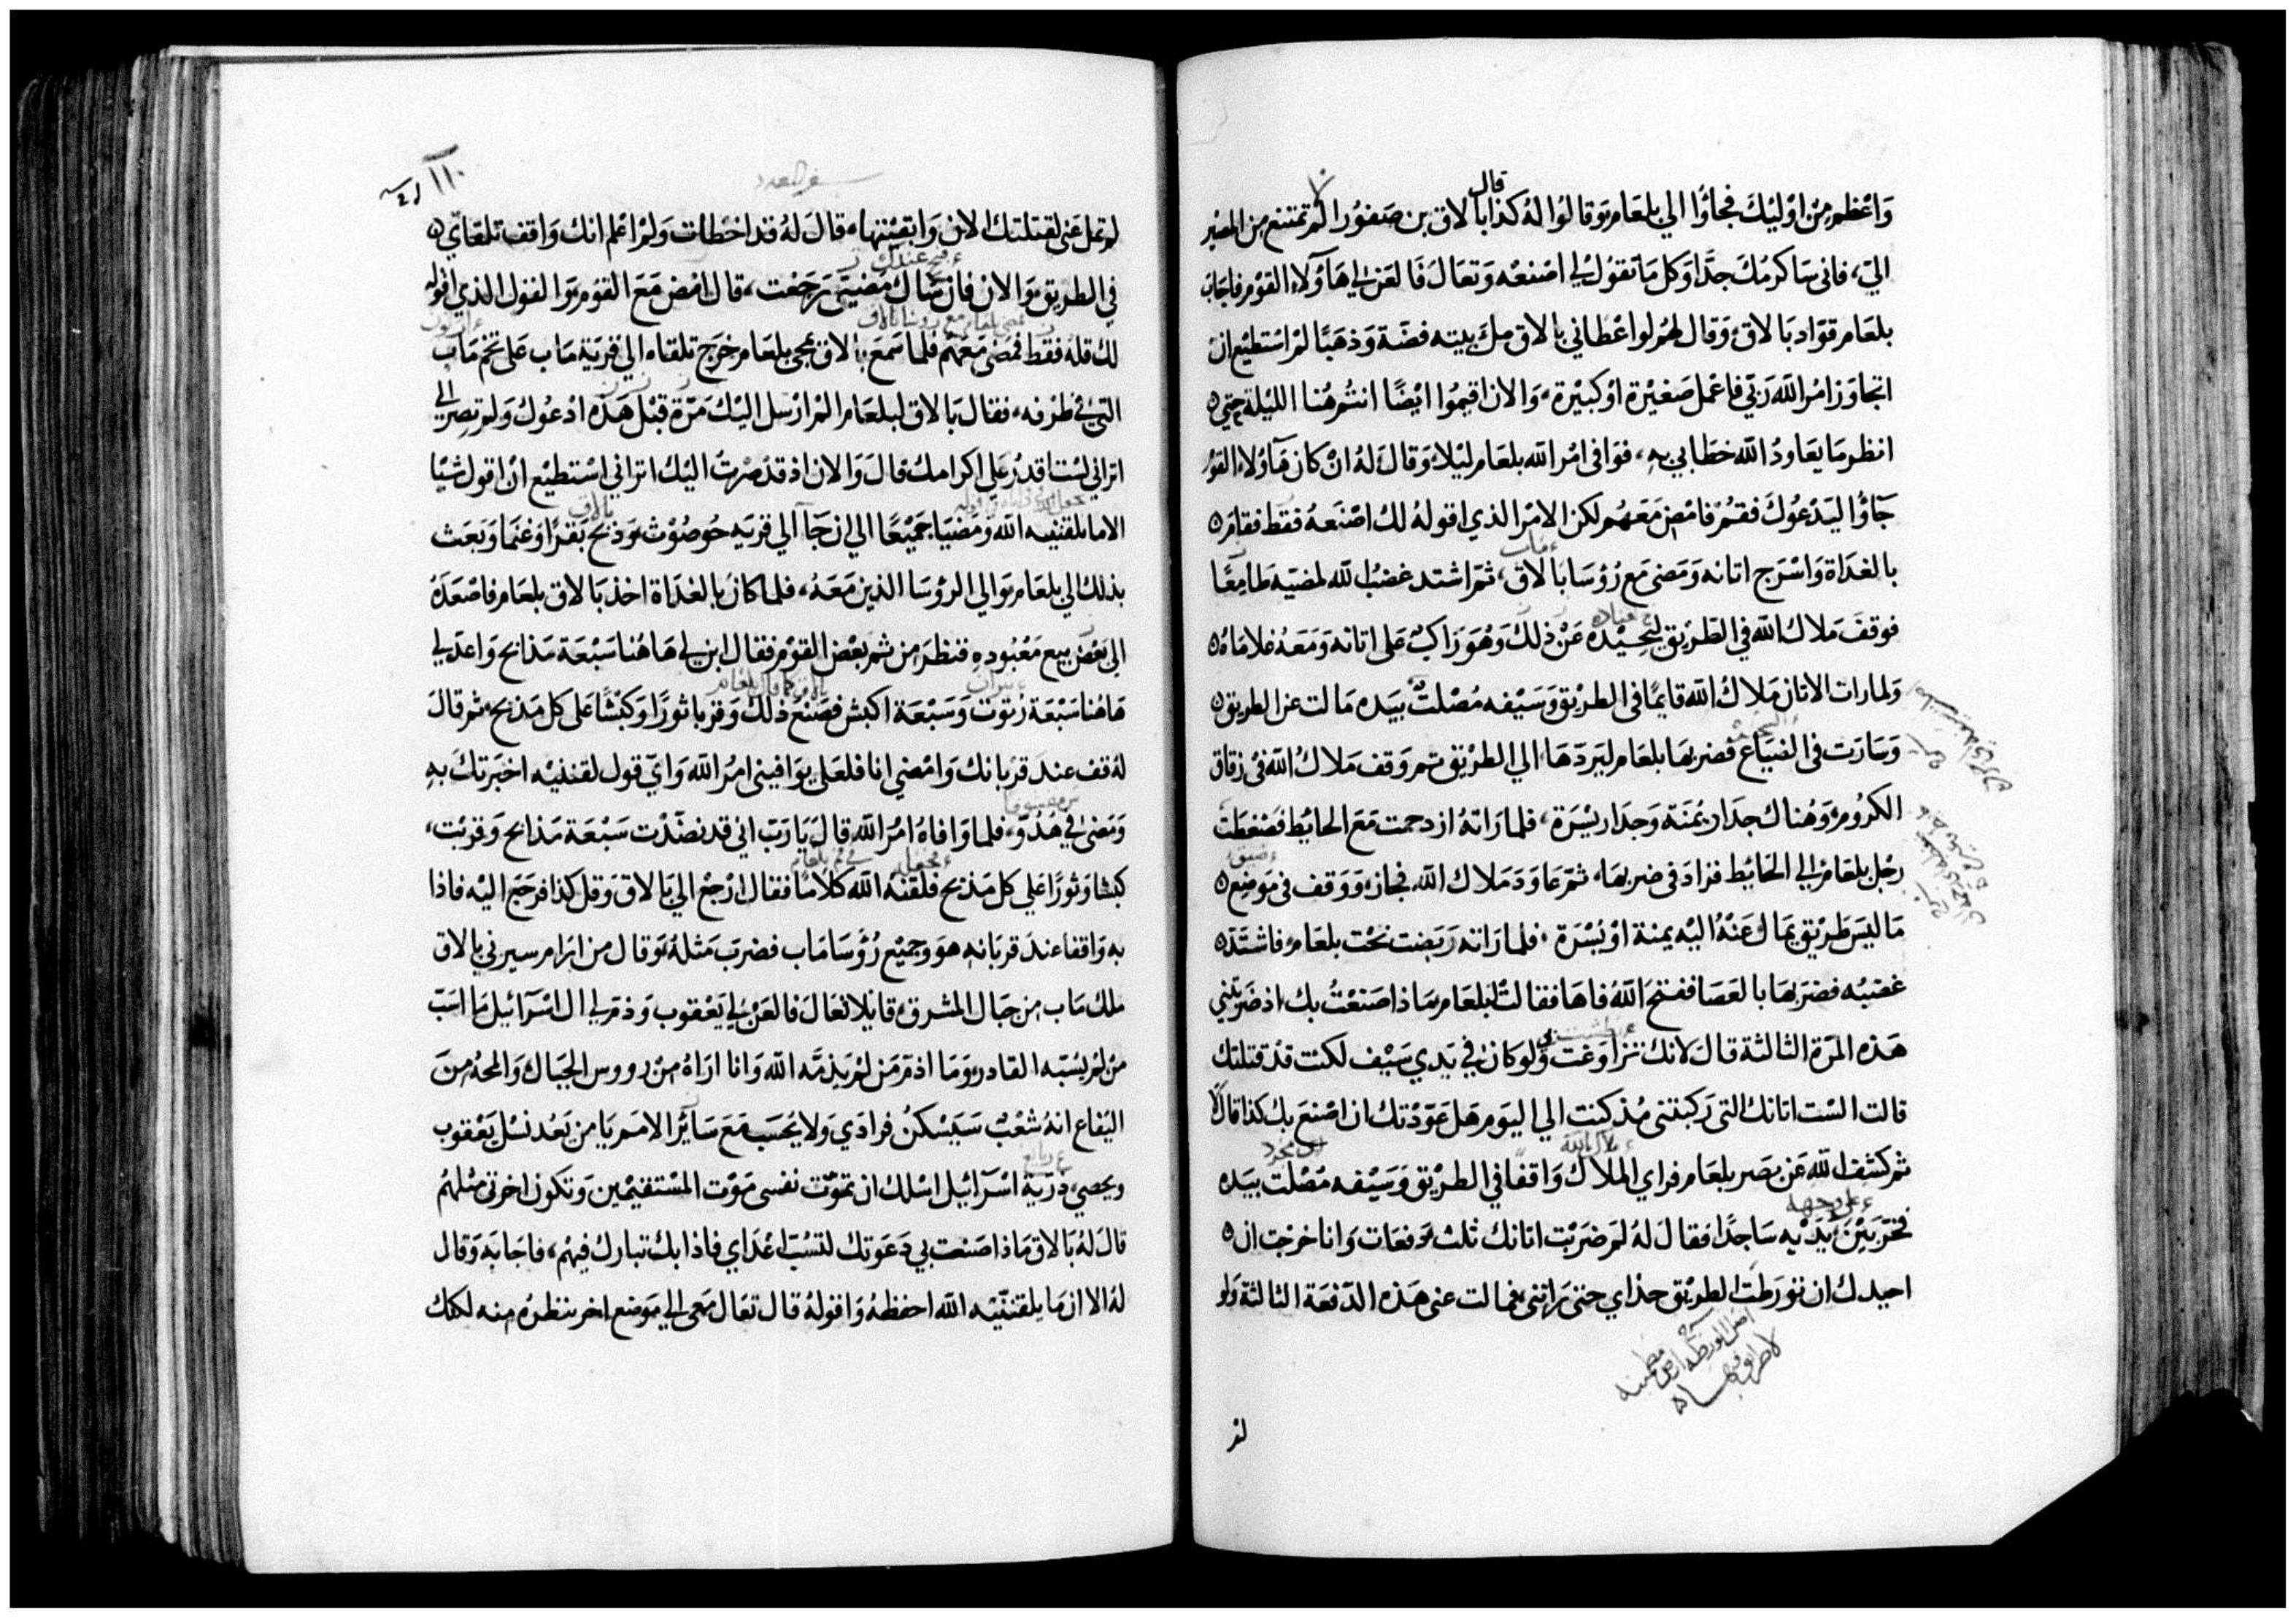 قال
واعظم من اوليك فجاؤا الي بلعام وقالوا له كذا بالاق بن صفورا لم تمتنع من المصير
الي، فاني ساكرمك جدًا وكل ما تقول لي اصنعه وتعال فالعن لي هآولاء القوم فاجاب
بلعام قواد بالاق وقال لهم لو اعطاني بالاق ملء بيته فضة وذهبًا لم استطيع ان
اتجاوز امر الله ربي فاعمل صغيرة او كبيرة، والان اقيموا ايضًا انتم هنا الليلة حتي
انظر ما يعاود الله خطابي به، فوافي امر الله بلعام ليلا وقال له ان كان هآولاء القوم
جاؤا ليدعوك فقم فامض معهم لكن الامر الذي اقوله لك اصنعه فقط فقام
بالغداة واسرج اتانه ومضي مع رؤسا بالاق، ثم اشتد غضب الله لمضيه طامعًا
فوقف ملاك الله في الطريق ليحيده عن ذلك وهو راكب علي اتانه ومعه غلاماه
ولما رات الاتان ملاك الله قايمًا في الطريق وسيفه مصلت بيده مالت عن الطريق
وسارت في الضياع فضربها بلعام ليردها الي الطريق ثم وقف ملاك الله في زقاق
الكروم وهناك جدار يمنة وجدار يسرة، فلما راته ازدحمت مع الحائط فضغطت
رجل بلعام الي الحائط فزاد في ضربها، ثم عاود ملاك الله فجاز ووقف في موضع
ما ليس طريق يمال عنه اليه يمنة او يسرة، فلما راته ربضت تحت بلعام فاشتد
غضبه فضربها بالعصا ففتح الله فاها فقالت لبلعام ماذا صنعت بك اذ ضربتني
هذه المرة الثالثة قال لانك راوغت ولو كان في يدي سيف لكنت قد قتلتك
قالت الست اتانك التي ركبتني مذ كنت الي اليوم هل عودتك ان اصنع بك كذا قال لا
ثم كشف الله عن بصر بلعام فراي الملاك واقفًا في الطريق وسيفه مصلت بيده
فخر بين يديه ساجدًا فقال له لم ضربت اتانك ثلث دفعات وانا خرجت ان
احيدك ان تورطت الطريق حذاي حتي راتني فمالت عني هذه الدفعة الثالثة ولو
لم
سفر العدد
١١٠
لم تمل عني لقتلتك الان وابقيتها، قال له قد اخطات ولم اعلم انك واقف تلقاي
في الطريق والان فان شاك مضيتي رجعت، قال امض مع القوم والقول الذي اقوله
لك قله فقط فمضي معهم فلما سمع بالاق بمجي بلعام خرج تلقاه الي قرية ماب علي تخم ماب
التي في طرفه، فقال بالاق لبلعام الم ارسل اليك مرة قبل هذه ادعوك ولم تصر الي
اتراني لست اقدر علي اكرامك قال والان اذ قد صرت اليك اتراني استطيع ان اقول شيا
الا ما يلقنيه الله ومضيا جميعًا الي ان جآ الي قريه حوصوث وذبح بقرًا وغنما وبعث
بذلك الي بلعام والي الرؤسا الذين معه، فلما كان بالغداة اخذ بالاق بلعام فاصعده
الي بعض بيع معبوده فنظر من ثم بعض القوم فقال ابن لي هاهنا سبعة مذابح واعد لي
هاهنا سبعة رتوت وسبعة اكبش فصنع ذلك وقربا ثورًا وكبشًا علي كل مذبح ثم قال
له قف عند قربانك وامضي انا فلعل يوافيني امر الله واي قول لقننيه اخبرتك به
ومضي في هدو، فلما وافاه امر الله قال يا رب اني قد نضدت سبعة مذابح وقربت،
كبشا وثورًا علي كل مذبح فلقنه الله كلامًا فقال ارجع الي بالاق وقل كذا فرجع اليه فاذا
به واقفا عند قربانه هو وجميع رؤسا ماب فضرب مثله وقال من ارام سيرني بالاق
ملك ماب من جبال المشرق، قايلا تعال فالعن لي يعقوب وذم لي ال اسرآئيل ما اسب
من لم يسبه القادر وما اذم من لم يذمه الله وانا اراه من رووس الجبال والمحه من
اليفاع انه شعب سيسكن فرادي ولا يحسب مع سائر الامم يا من يعد نسل يعقوب
ويحصي ذرية اسرآئيل اسلك ان تموت نفسي موت المستقيمين وتكون اخرتي مثلهم
قال له بالاق ماذا صنعت بي دعوتك لتسب اعداي فاذا بك تبارك فيهم، فاجابه وقال
له الا ان ما يلقننيه الله احفظه واقوله قال تعال معي الي موضع اخر ننظره منه لكلك